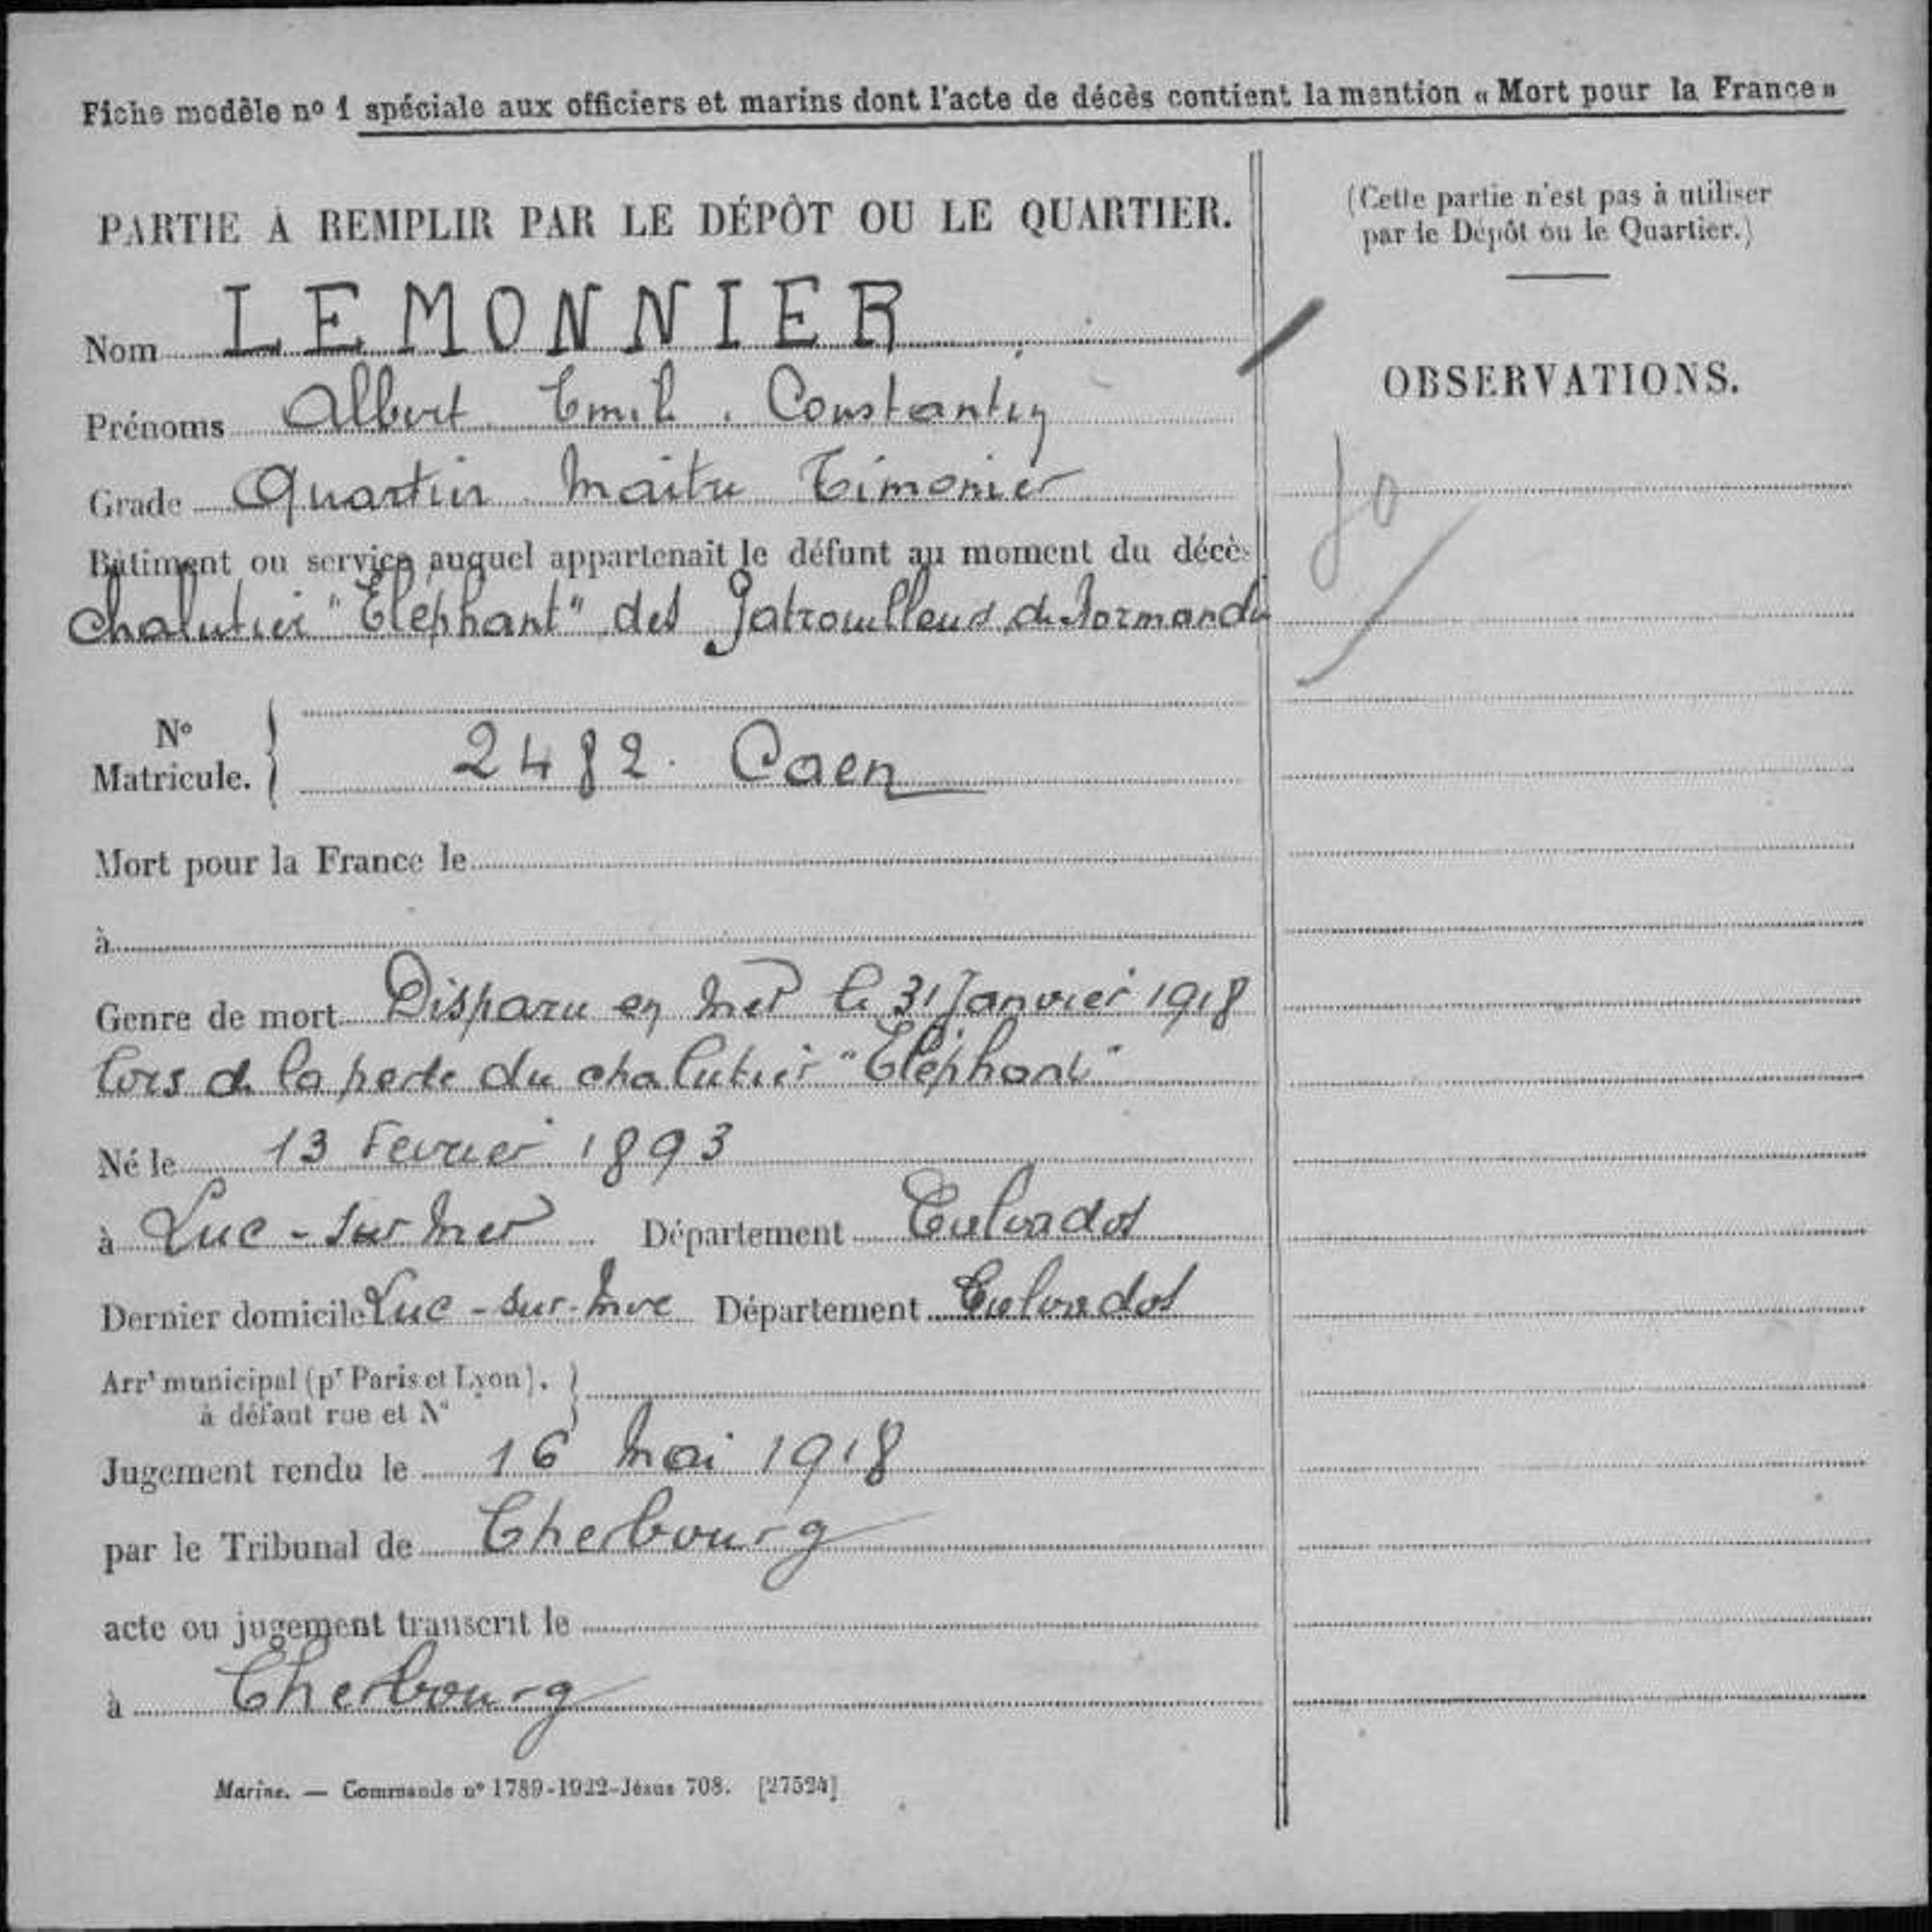 Fiche modèle nº 1 spéciale aux officiers et marins dont l'acte de décès contient la mention « Mort pour la France »
PARTIE À REMPLIR PAR LE DÉPÔT OU LE QUARTIER.
Nom LEMONNIER
Prénoms Albert Emile Constantin
Grade Quartier Maitre Timonier
Bâtiment ou service auquel appartenait le défunt au moment du décès
Chalutier "Elephant" des Patrouilleurs de Normandie
Nº Matricule. 2482. Caen
Mort pour la France le
à
Genre de mort Disparu en mer le 31 Janvier 1918
lors de la perte du chalutier "Eléphant"
Né le 13 Fevrier 1893
à Luc-sur Mer Département Calvados
Dernier domicile Luc-sur-Mer Département Calvados
Arrt municipal (pr Paris et Lyon).
à défaut rue et Nº
Jugement rendu le 16 Mai 1918
par le Tribunal de Cherbourg
acte ou jugement transcrit le
à Cherbourg
Marine. — Commande nº 1789-1922-Jésus 708. [27524]
(Cette partie n'est pas à utiliser
par le Dépôt ou le Quartier.)
OBSERVATIONS.